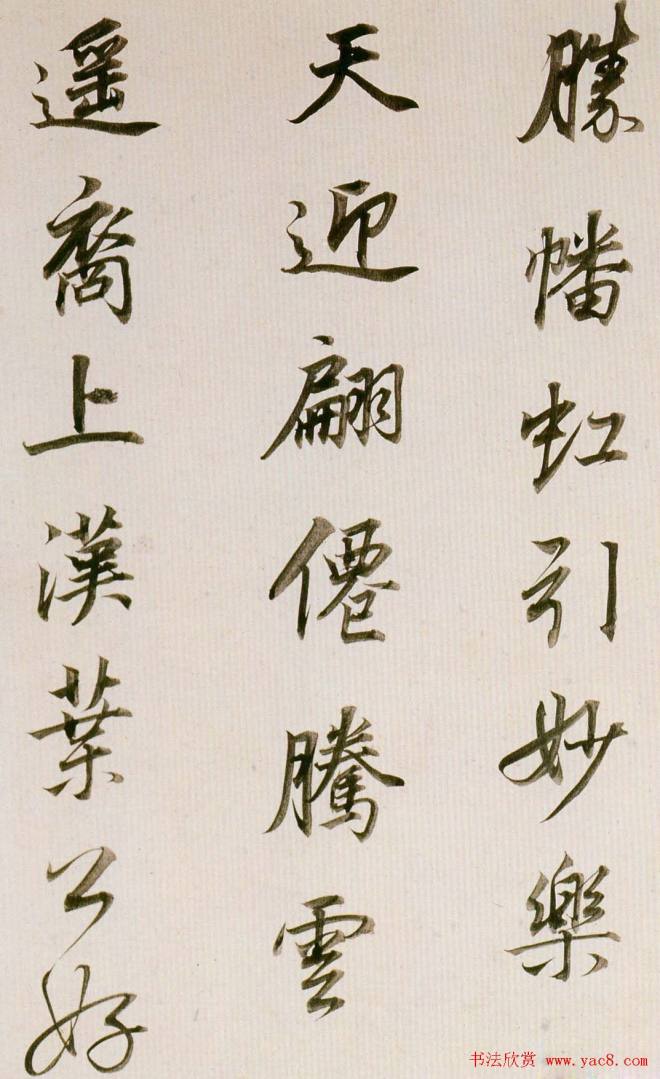 勝幡虹引妙樂
天迎翩僊騰雲
遥裔上漢葉公好
书法欣赏 www.yac8.com